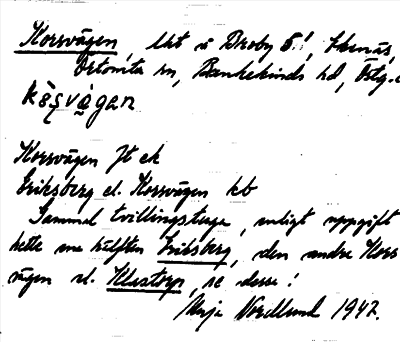 Korsvägen, lht u Droby 5:1, Ekenäs,
Örtomta sn, Bankekinds hd, Östg.
kɔ̀ʂvä̀gən
Korsvägen Jt ek
Eriksberg el. Korsvägen kb
Gammal tvillingstuga, enligt uppgift
hette ena hälften Eriksberg, den andra Kors
vägen el. Klastorp, se dessa!
Maja Nordlund 1947.